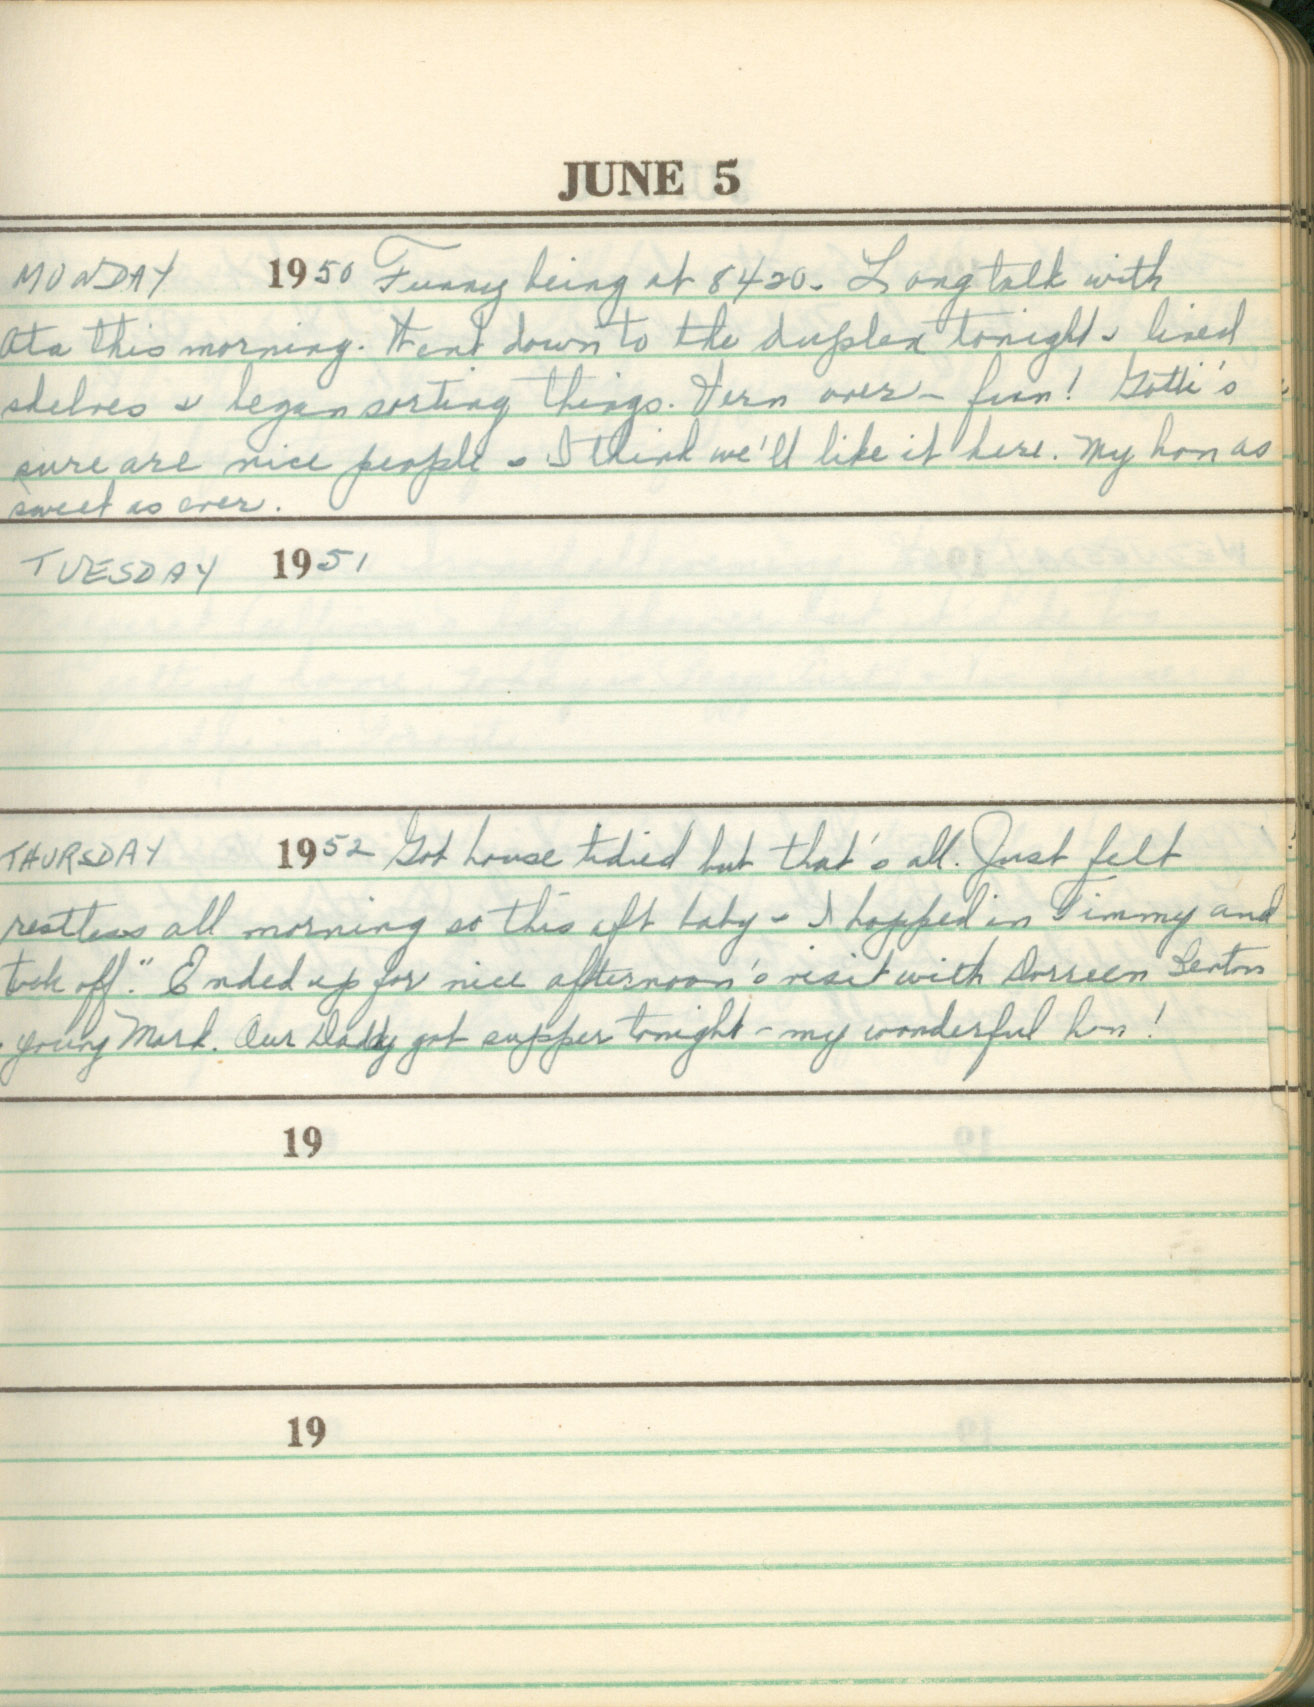 JUNE 5
MONDAY 1950 Funny being at 8420. Long talk with
Ata this morning. Went down to the duplex tonight & lined
shelves & began sorting things. Vern over - fun! Gotti's
sure are nice people & I think we'll like it here. My hon as
sweet as ever.
TUESDAY 1951
THURSDAY 1952 Got house tidied but that's all. Just felt
restless all morning so this aft baby & I hopped in Timmy and
took off." Ended up for nice afternoon's visit with Dorreen
young Mark. Our Daddy got supper tonight - my wonderful hon!
19
19